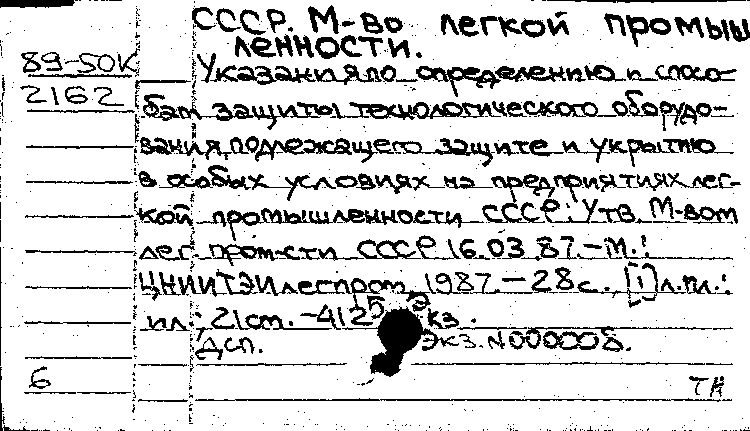 СССР. М-во легкой промыш
ленности.
89-50К
Указания по определению и спосо-
2162
бам защиты технологического оборудо-
вания, подлежащего защите и укрытию
в особых условиях на предприятиях лег-
кой промышленности СССР: Утв. М-вом
лег. пром-сти СССР 16.03.87.-М.:
ЦНИИТЭИлегпром, 1987.-28с., [1]л.пл.:
ил.; 21см.-4125 экз.
ДСП. Экз. N000008.
6